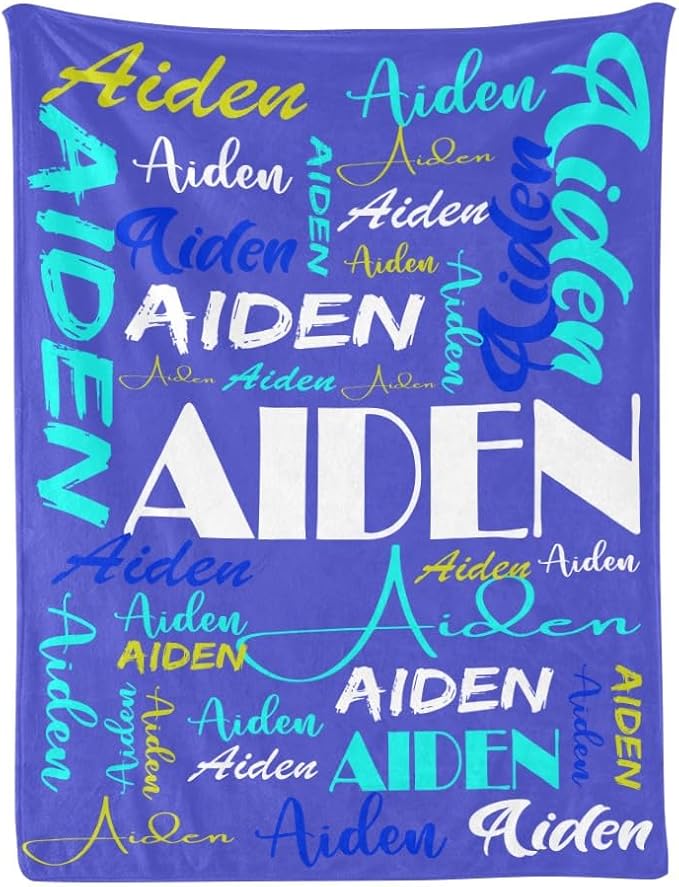 Aiden
Aiden
Aiden
AIDEN
Aiden
AIDEN
Aiden
Aiden
Aiden
Aiden
Aiden
Aiden
AIDEN
Aiden
Aiden
Aiden
AIDEN
Aiden
Aiden
Aiden
Aiden
Aiden
AIDEN
Aiden
AIDEN
Aiden
AIDEN
Aiden
Aiden
Aiden
Aiden
AIDEN
Aiden
Aiden
Aiden